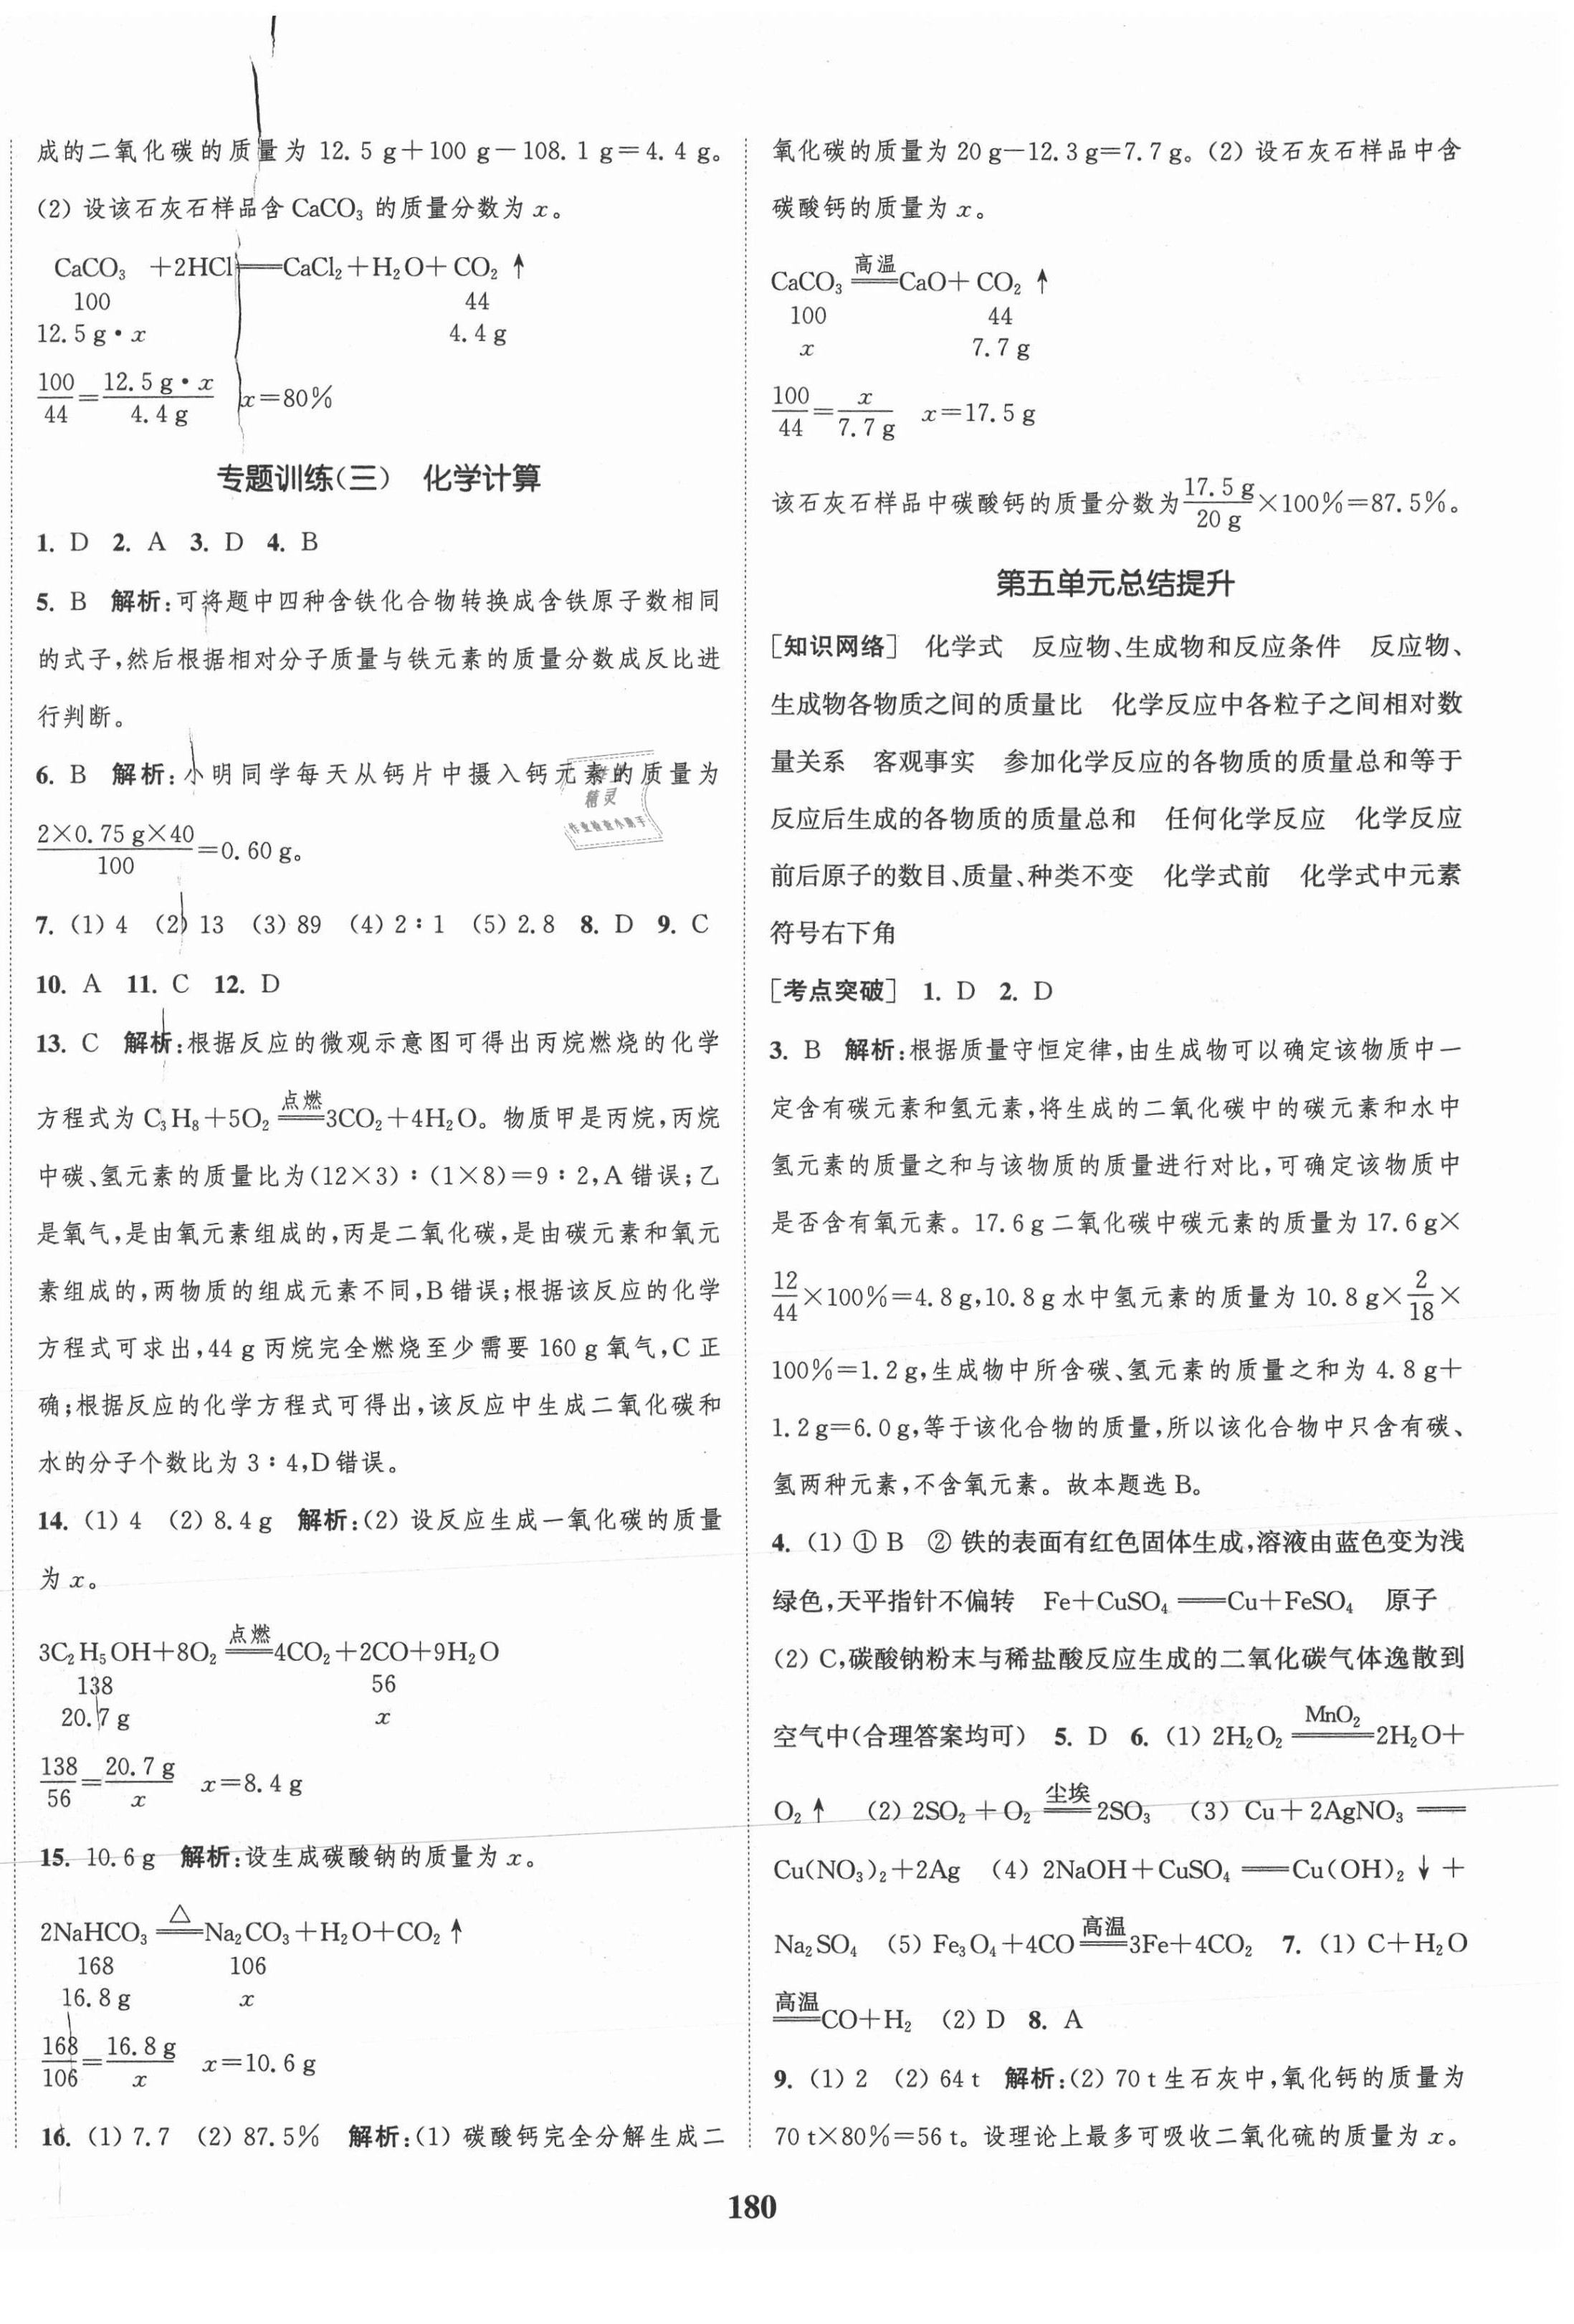 成的二氧化碳的质量为 12.5 g+100 g-108.1 g=4.4 g。
(2) 设该石灰石样品含 CaCO₃ 的质量分数为 x。
CaCO₃ +2HCl══CaCl₂+H₂O+CO₂↑
100 44
12.5 g·x 4.4 g
100/44=12.5 g·x/4.4 g x=80%
专题训练(三) 化学计算
1. D 2. A 3. D 4. B
5. B 解析:可将题中四种含铁化合物转换成含铁原子数相同
的式子,然后根据相对分子质量与铁元素的质量分数成反比进
行判断。
6. B 解析:小明同学每天从钙片中摄入钙元素的质量为
2×0.75 g×40/100=0.60 g。
7. (1) 4 (2) 13 (3) 89 (4) 2∶1 (5) 2.8 8. D 9. C
10. A 11. C 12. D
13. C 解析:根据反应的微观示意图可得出丙烷燃烧的化学
方程式为 C₃H₈+5O₂ 点燃══ 3CO₂+4H₂O。物质甲是丙烷,丙烷
中碳、氢元素的质量比为(12×3)∶(1×8)=9∶2,A 错误;乙
是氧气,是由氧元素组成的,丙是二氧化碳,是由碳元素和氧元
素组成的,两物质的组成元素不同,B 错误;根据该反应的化学
方程式可求出,44 g 丙烷完全燃烧至少需要 160 g 氧气,C 正
确;根据反应的化学方程式可得出,该反应中生成二氧化碳和
水的分子个数比为 3∶4,D 错误。
14. (1) 4 (2) 8.4 g 解析:(2) 设反应生成一氧化碳的质量
为 x。
3C₂H₅OH+8O₂ 点燃══ 4CO₂+2CO+9H₂O
138 56
20.7 g x
138/56=20.7 g/x x=8.4 g
15. 10.6 g 解析:设生成碳酸钠的质量为 x。
2NaHCO₃ △══ Na₂CO₃+H₂O+CO₂↑
168 106
16.8 g x
168/106=16.8 g/x x=10.6 g
16. (1) 7.7 (2) 87.5% 解析:(1) 碳酸钙完全分解生成二
氧化碳的质量为 20 g-12.3 g=7.7 g。(2) 设石灰石样品中含
碳酸钙的质量为 x。
CaCO₃ 高温══ CaO+CO₂↑
100 44
x 7.7 g
100/44=x/7.7 g x=17.5 g
该石灰石样品中碳酸钙的质量分数为17.5 g/20 g×100%=87.5%。
第五单元总结提升
[知识网络] 化学式 反应物、生成物和反应条件 反应物、
生成物各物质之间的质量比 化学反应中各粒子之间相对数
量关系 客观事实 参加化学反应的各物质的质量总和等于
反应后生成的各物质的质量总和 任何化学反应 化学反应
前后原子的数目、质量、种类不变 化学式前 化学式中元素
符号右下角
[考点突破] 1. D 2. D
3. B 解析:根据质量守恒定律,由生成物可以确定该物质中一
定含有碳元素和氢元素,将生成的二氧化碳中的碳元素和水中
氢元素的质量之和与该物质的质量进行对比,可确定该物质中
是否含有氧元素。17.6 g 二氧化碳中碳元素的质量为 17.6 g×
12/44×100%=4.8 g,10.8 g 水中氢元素的质量为 10.8 g×2/18×
100%=1.2 g,生成物中所含碳、氢元素的质量之和为 4.8 g+
1.2 g=6.0 g,等于该化合物的质量,所以该化合物中只含有碳、
氢两种元素,不含氧元素。故本题选 B。
4. (1) ① B ② 铁的表面有红色固体生成,溶液由蓝色变为浅
绿色,天平指针不偏转 Fe+CuSO₄══Cu+FeSO₄ 原子
(2) C,碳酸钠粉末与稀盐酸反应生成的二氧化碳气体逸散到
空气中(合理答案均可) 5. D 6. (1) 2H₂O₂ MnO₂══ 2H₂O+
O₂↑ (2) 2SO₂+O₂ 尘埃══ 2SO₃ (3) Cu+2AgNO₃══
Cu(NO₃)₂+2Ag (4) 2NaOH+CuSO₄══Cu(OH)₂↓+
Na₂SO₄ (5) Fe₃O₄+4CO 高温══ 3Fe+4CO₂ 7. (1) C+H₂O
高温══ CO+H₂ (2) D 8. A
9. (1) 2 (2) 64 t 解析:(2) 70 t 生石灰中,氧化钙的质量为
70 t×80%=56 t。设理论上最多可吸收二氧化硫的质量为 x。
180
精灵
作业检查小助手